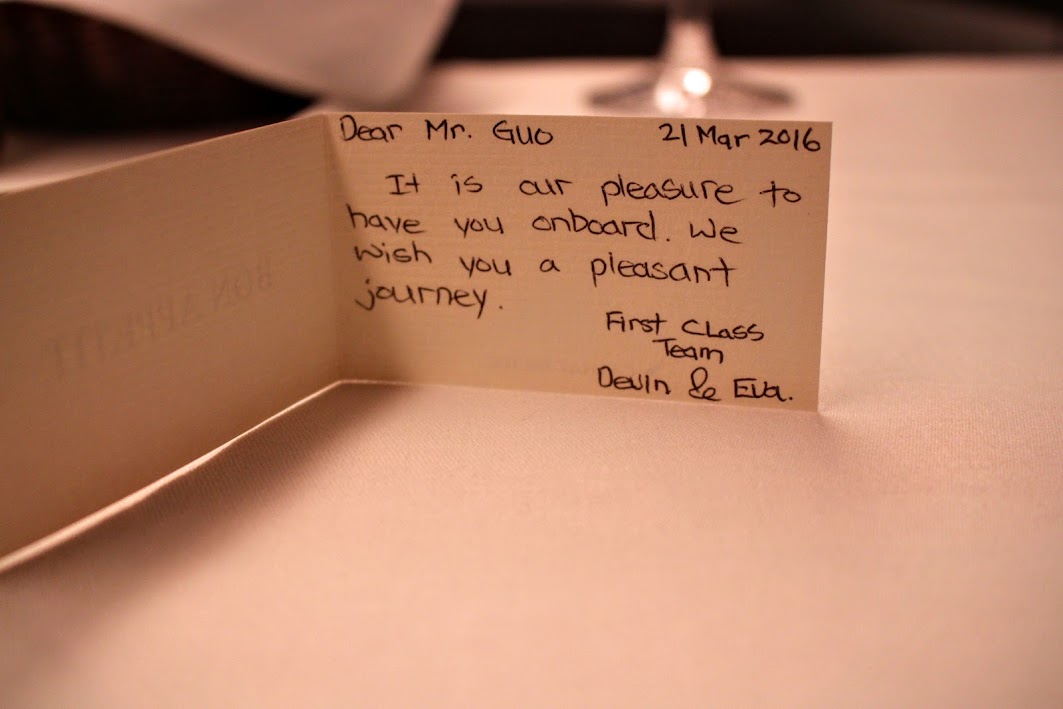 BON APPETIT
Dear Mr. Guo 21 Mar 2016
It is our pleasure to
have you onboard. We
wish you a pleasant
journey.
First Class
Team
Devin & Eva.